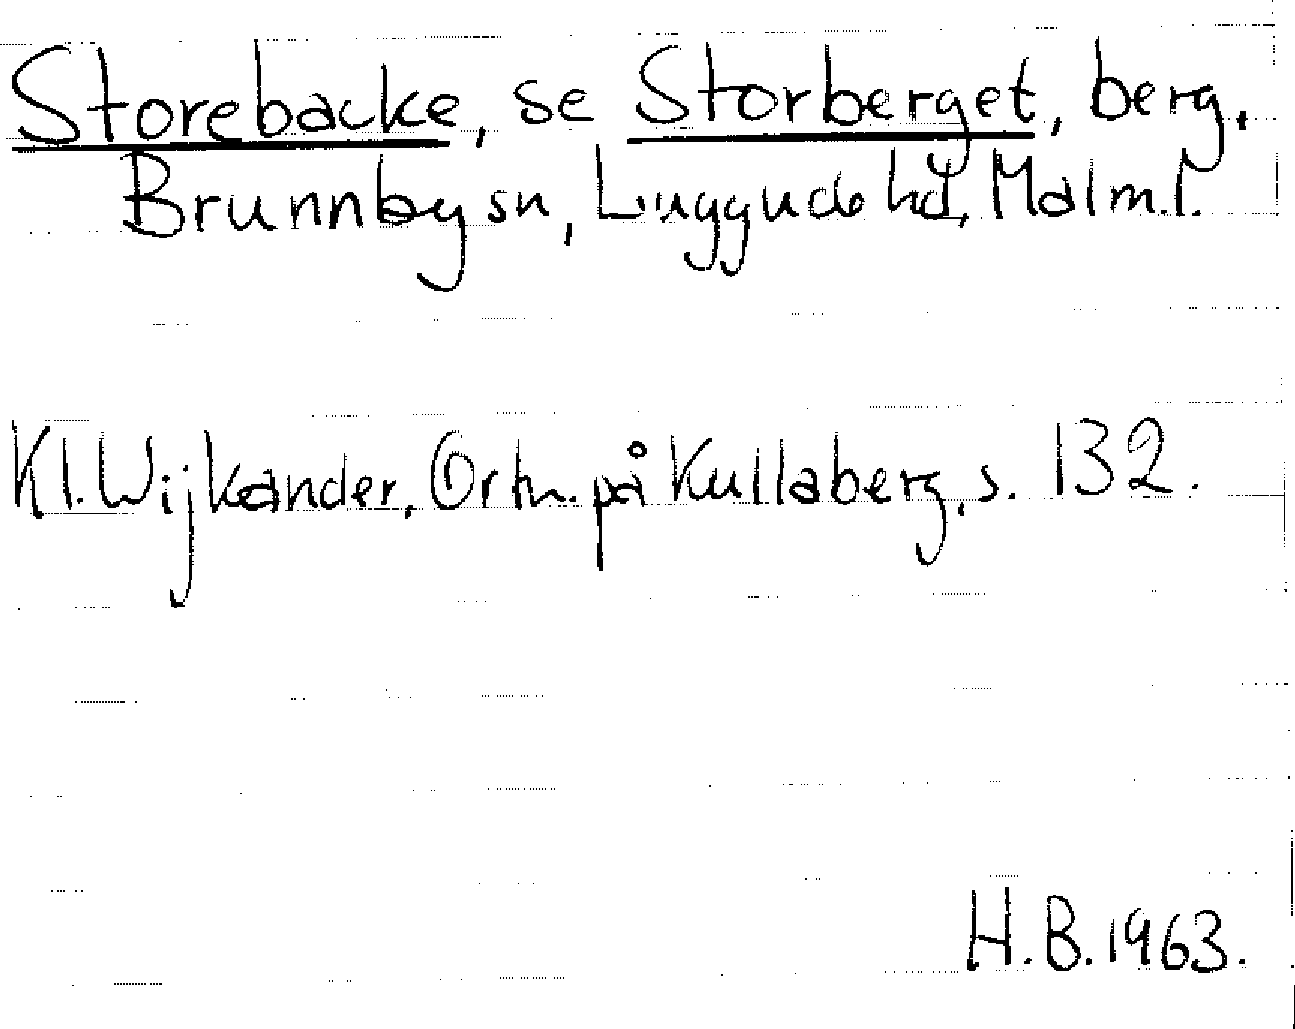 Storebacke, se Storberget, berg,
Brunnby sn, Luggude hd, Malm.l.
Kl. Wijkander, Ortn. på Kullaberg, s. 132.
H.B. 1963.